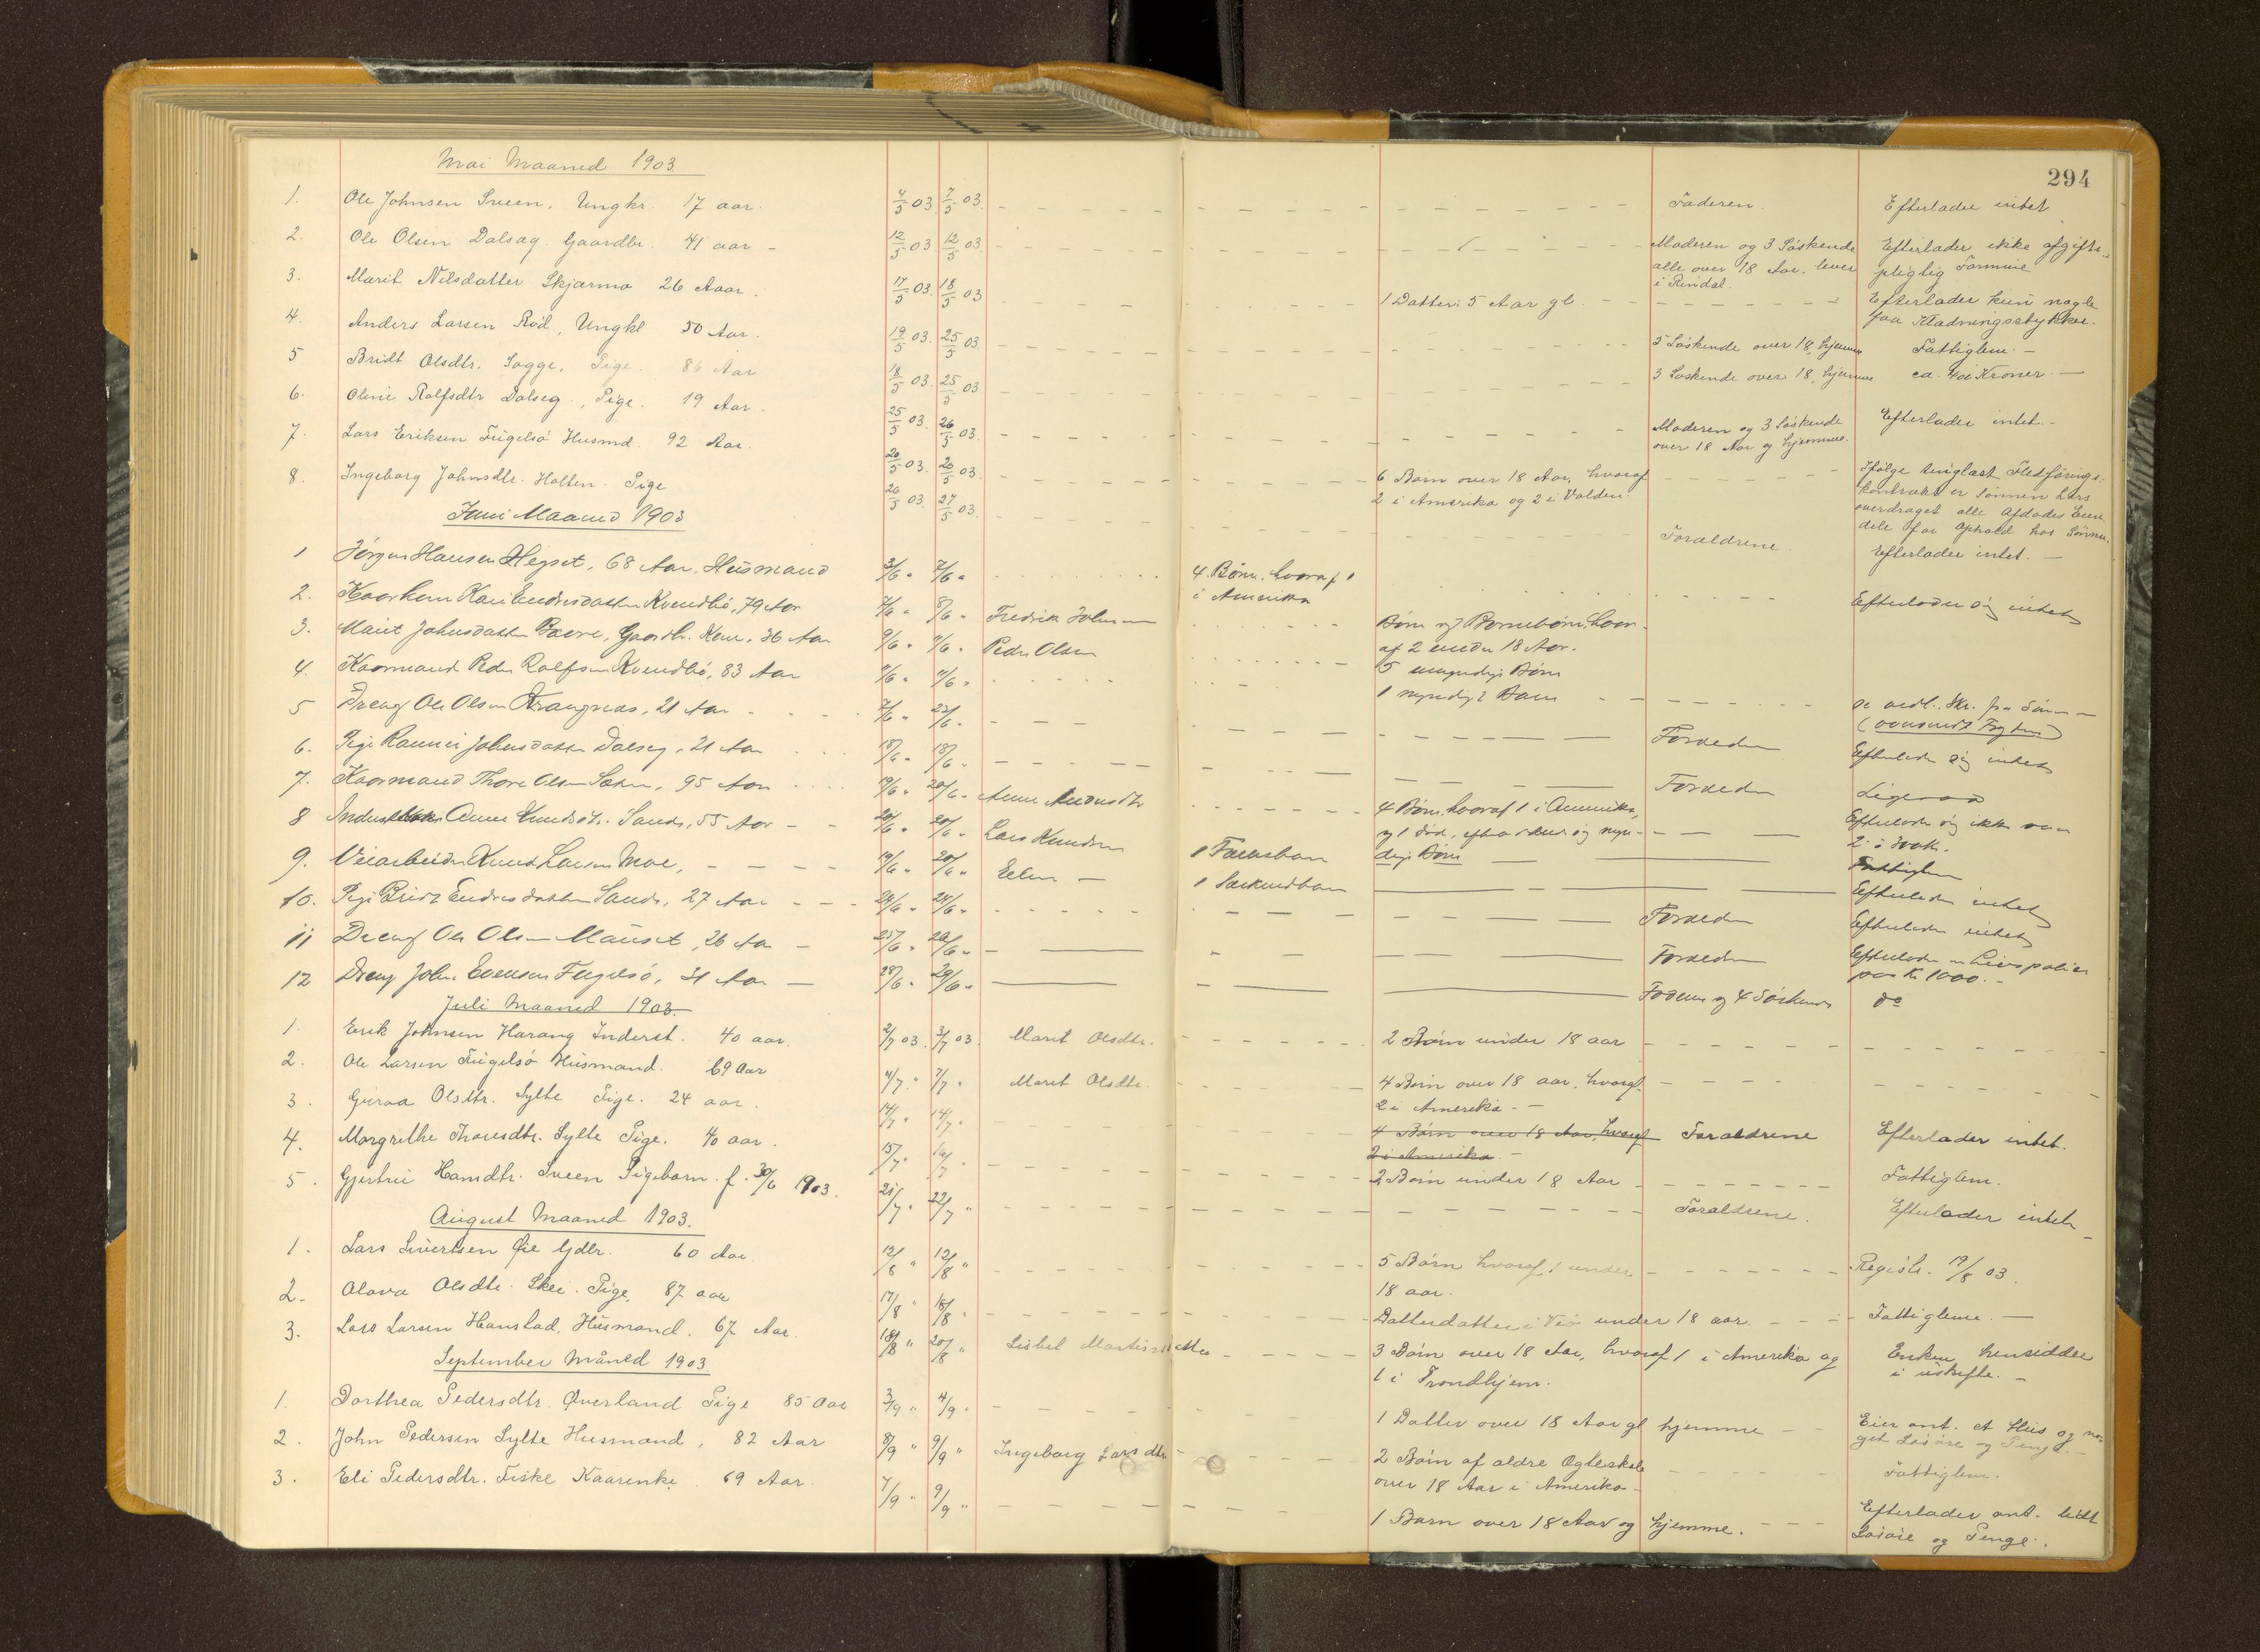 294
Mai Maaned 1903.
1. Ole Johnsen Sveen, Ungkr. 17 aar. 4/5 03. 7/5 03. Faderen. Efterlader intet
2. Ole Olsen Dalseg. Gaardbr. 41 aar - 12/5 03 12/5 03. Moderen og 3 Søskende Efterlader ikke afgifts-
alle over 18 Aar. lever pligtig Formue
i Rindal.
3. Marit Nilsdatter Skjærmo 26 Aaar. 17/5 03. 18/5 03 1 Datter 5 Aar gl. Efterlader kun nogle
faa Klædningsstykker.
4. Anders Larsen Rød, Ungkl 50 Aar. 19/5 03. 25/5 03 5 Søskende over 18, hjemme Fattiglem. -
5 Bridt Olsdtr. Sogge, Pige. 86 Aar 18/5 03. 25/5 03 3 Søskende over 18, hjemme ca. Kroner. -
6. Oline Rolfsdtr Dalseg, Pige. 19 Aar. 25/5 03. 26/5 03. Moderen og 3 Søskende Efterlader intet. -
over 18 Aar og hjemme.
7. Lars Eriksen Fugelsø Husmd. 92 Aar. 20/5 03. 20/5 03. 6 Børn over 18 Aar, hvoraf Ifølge tinglæst Fledførings-
2 i Amerika og 2 i Valden kontrakt er Sønnen Lars
overdraget alle Afdødes Eien
dele for Ophold hos Sønnen.
8. Ingeborg Johnsdtr. Holten. Pige 26/5 03. 27/5 03. Forældrene. Efterlader intet. -
Juni Maaned 1903
1 Jørgen Hansen Hegset, 68 Aar. Husmand 3/6 " 7/6 " 4 Børn, hvoraf 1
i Amerika Efterlader sig intet
2. Kaarkone Kari Endresdatter Kvendbø, 79 Aar 7/6 " 8/6 " Fredrik Johnsen Børn og Børnebørn, hvor-
af 2 under 18 Aar.
3. Marit Johnsdatter Bævre, Gaardbr. Kone, 36 Aar 9/6 " 9/6 " Peder Olsen 5 umyndige Børn
4. Kaarmand Peder Rolfsen Kvendbø, 83 Aar 11/6 " 11/6 " 1 myndigt Barn se vedl. Skr. fra Søn -
5 Dreng Ole Olsen Krangnæs, 21 Aar 7/6 " 23/6 " Forældre Efterlader sig intet
6. Pige Rannei Johnsdatter Dalseg, 21 Aar 18/6 " 18/6 " Forældre Ligesaa
7. Kaarmand Thore Olsen Sæter, 95 Aar 19/6 " 20/6 " Anne Andersdtr 4 Børn, hvoraf 1 i Amerika, Efterlader sig ikke
og 1 død, efterladende sig myn-
dige Børn
8 Anne Knudsdtr. Sande, 55 Aar 20/6 " 20/6 " Lars Knudsen 1 Fællesbarn Fattiglem
9. Veiarbeider Knud Larsen Moe, 19/6 " 20/6 " Eelen - 1 Særkuldbarn Efterlader intet
10. Pige Bridt Endresdatter Sande, 27 Aar 24/6 " 24/6 " Forældre Efterlader intet
11 Dreng Ole Olsen Mauset, 26 Aar - 25/6 " 26/6 " Forældre Efterlader en Livspolice
paa Kr 1000. -
12 Dreng John Evensen Fugelsø, 31 Aar - 28/6 " 29/6 " Foderen og 4 Søskende do
Juli Maaned 1903.
1. Erik Johnsen Harang Inderst. 40 aar. 2/7 03. 3/7 03. Marit Olsdtr. 2 Børn under 18 aar
2. Ole Larsen Fugelsø Husmand. 69 Aar 4/7 " 7/7 " Marit Olsdtr. 4 Børn over 18 aar, hvoraf
2 i Amerika. -
3. Guroa Olsdtr. Sylte Pige. 24 aar. 14/7 " 14/7 " 4 Børn over 18 Aar, hvoraf Forældrene Efterlader intet.
2 i Amerika. -
4. Margrethe Thoresdtr. Sylte Pige. 40 aar. 15/7 " 16/7 " 2 Børn under 18 Aar Fattiglem.
5. Gjertrui Hansdtr. Sveen Pigebarn. f. 30/6 1903. 21/7 " 22/7 " Forældrene. Efterlader intet
August Maaned 1903.
1. Lars Sivertsen Øie Gdbr. 60 Aar 12/8 " 12/8 " 5 Børn hvoraf 1 under Registr. 19/8 03.
18 aar.
2. Olava Olsdtr. Skei. Pige, 87 aar 17/8 " 18/8 " Datterdatter i under 18 aar. Fattiglem. -
3. Lars Larsen Hanstad, Husmand. 67 Aar. 18/8 " 20/8 " Lisbet Martinsdatter 3 Børn over 18 Aar, hvoraf 1 i Amerika og Enken hensidder
1 i Trondhjem. i uskifte. -
September Måned 1903
1. Dorthea Pedersdtr. Øverland Pige 85 Aar 3/9 " 4/9 " 1 Datter over 18 Aar gl hjemme Eier ant. et Hus og no-
get Løsøre og Penge. -
2. John Pedersen Sylte Husmand, 82 Aar 8/9 " 9/9 " Ingeborg Larsdtr 2 Børn af ældre Ægteskab Fattiglem.
over 18 Aar i Amerika -
3. Eli Pedersdtr. Fiske Kaarenke 69 Aar. 7/9 " 9/9 " 1 Barn over 18 Aar og hjemme. Efterlader ant. lidt
Løsøre og Penge.